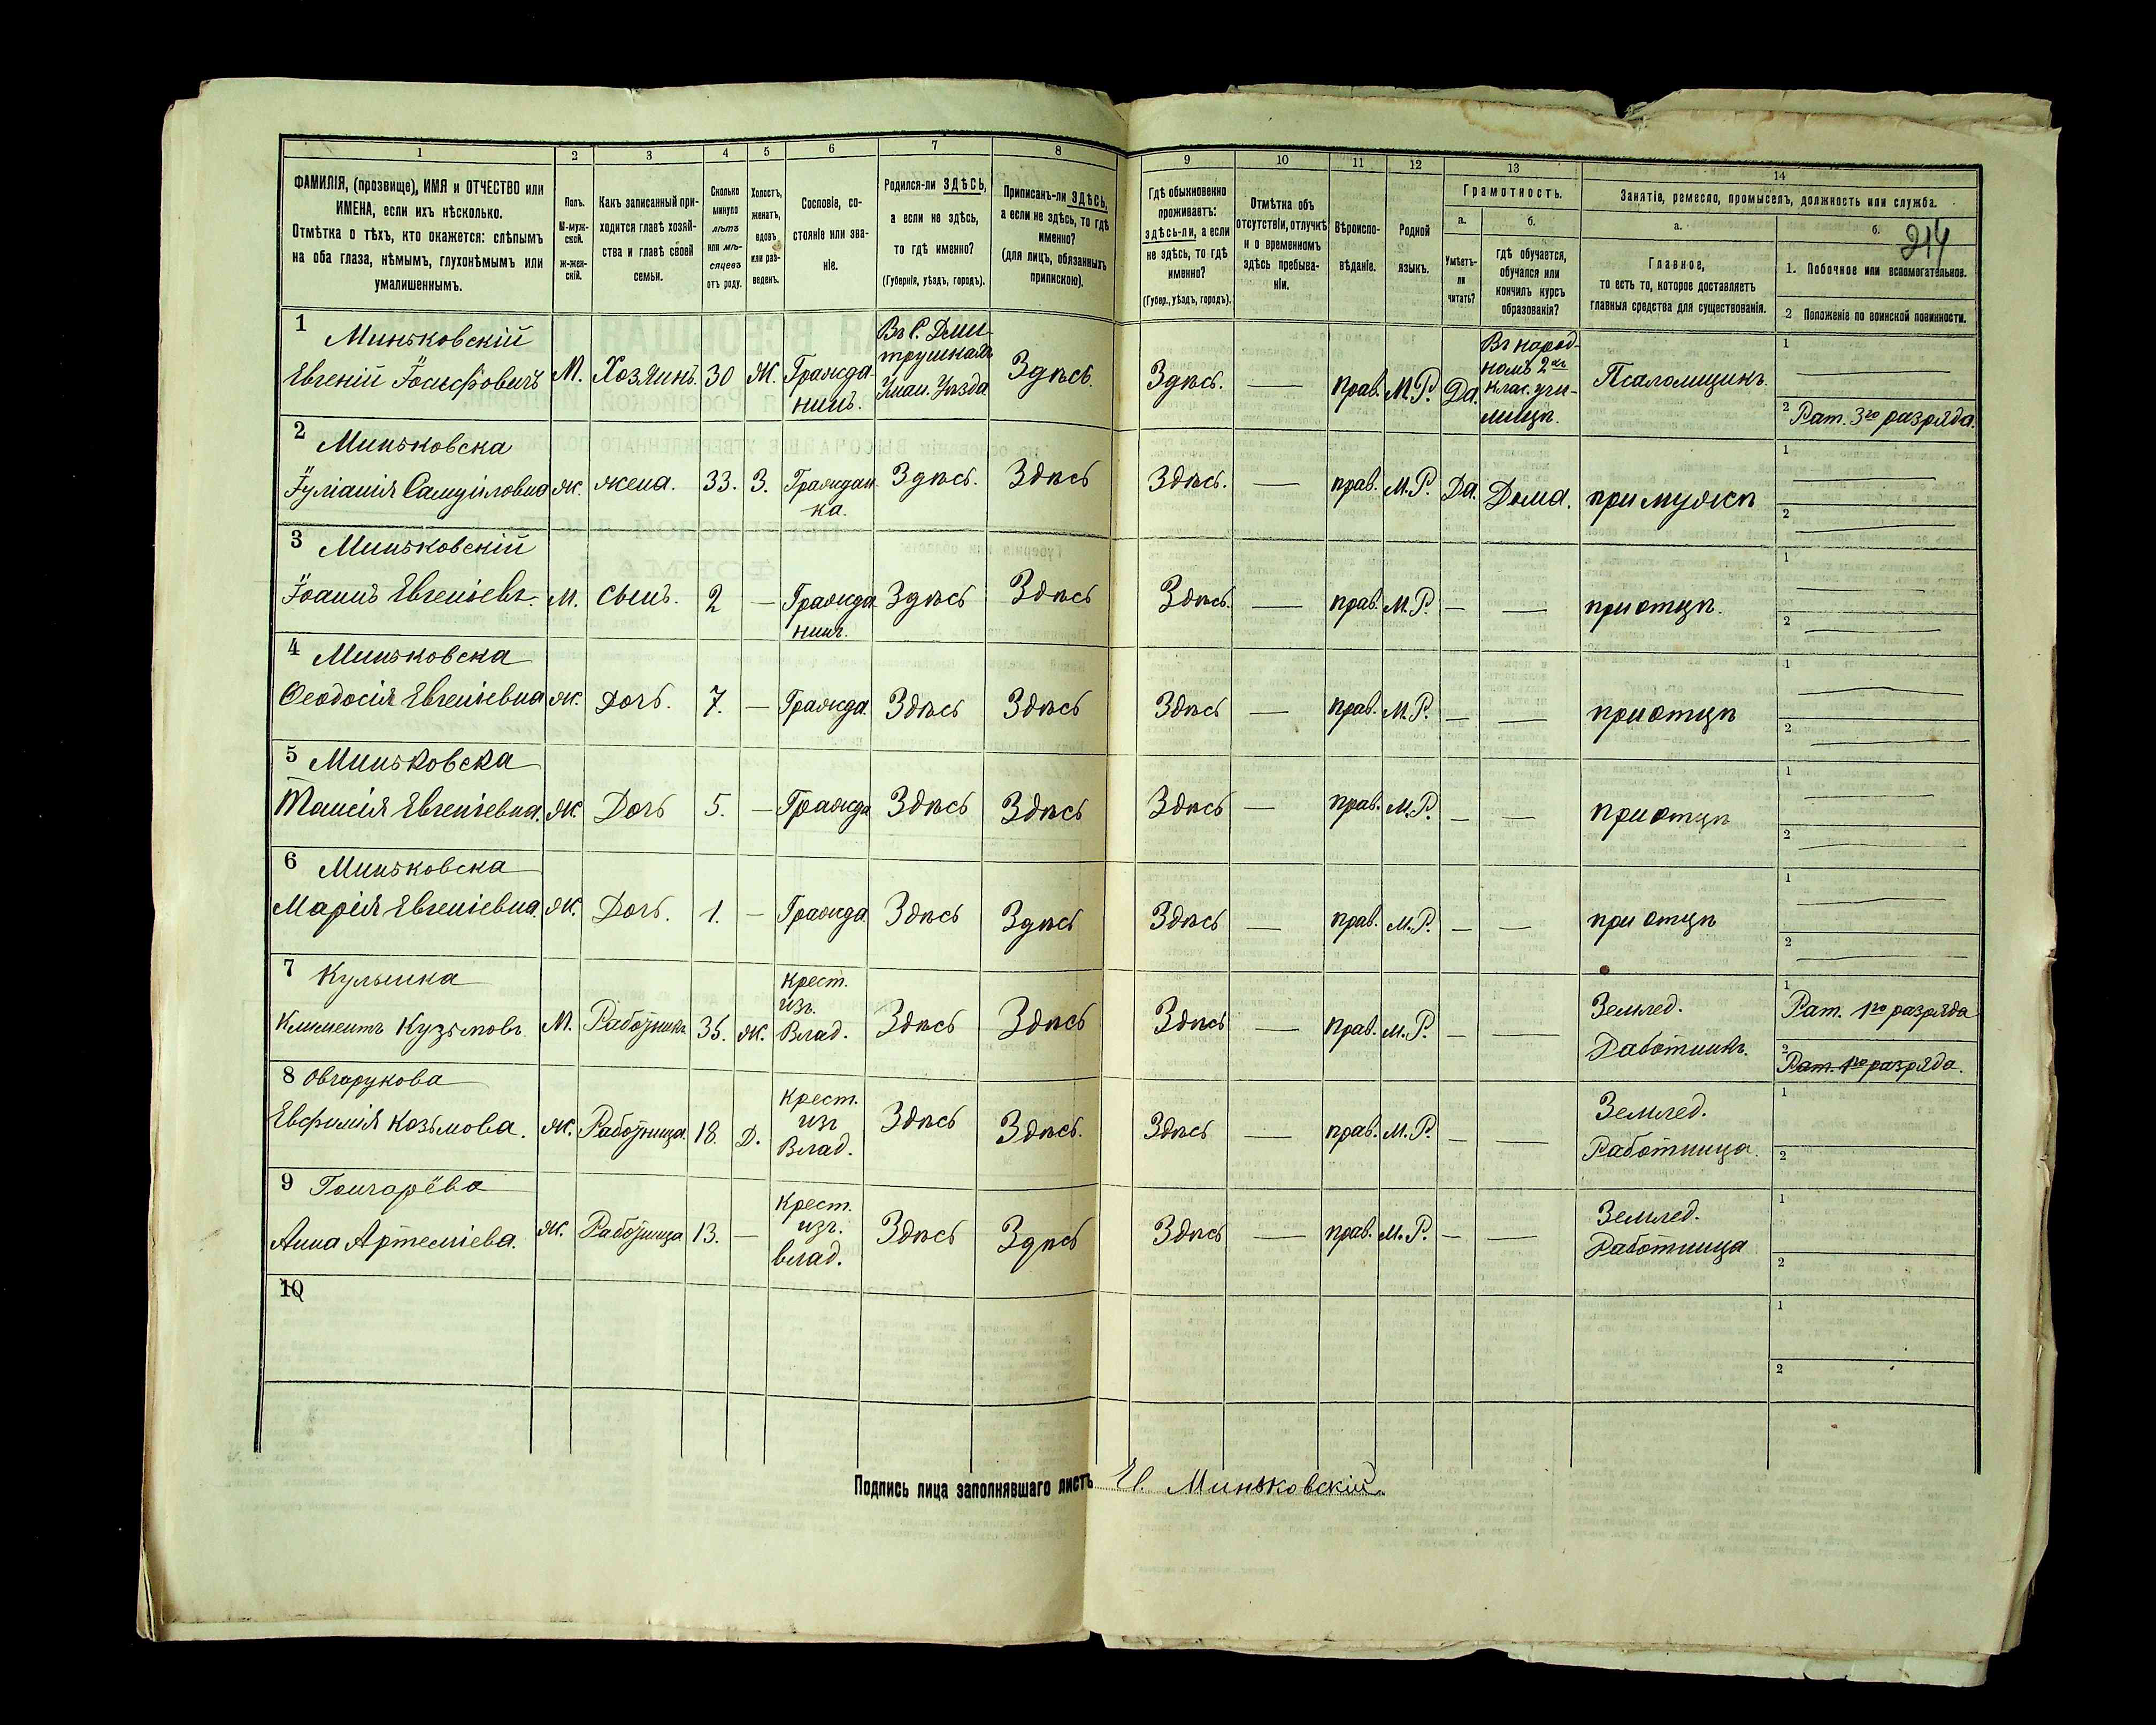 1 2 3 4 5 6 7 8 9 10 11 12 13 14
ФАМИЛІЯ, (прозвище), ИМЯ и ОТЧЕСТВО или
ИМЕНА, если ихъ нѣсколько.
Отмѣтка о тѣхъ, кто окажется: слѣпымъ
на оба глаза, нѣмымъ, глухонѣмымъ или
умалишеннымъ.
Полъ.
М-муж-
ской.
ж-жен-
скій.
Какъ записанный при-
ходится главѣ хозяй-
ства и главѣ своей
семьи.
Сколько
минуло
лѣтъ
или мѣ-
сяцевъ
отъ роду.
Холостъ,
женатъ,
вдовъ
или раз-
веденъ.
Сословіе, со-
стояніе или зва-
ніе.
Родился-ли ЗДѢСЬ,
а если не здѣсь,
то гдѣ именно?
(Губернія, уѣздъ, городъ).
Приписанъ-ли ЗДѢСЬ,
а если не здѣсь, то гдѣ
именно?
(для лицъ, обязанныхъ
припискою).
Гдѣ обыкновенно
проживаетъ:
здѣсь-ли, а если
не здѣсь, то гдѣ
именно?
(Губер., уѣздъ, городъ).
Отмѣтка объ
отсутствіи, отлучкѣ
и о временномъ
здѣсь пребыва-
ніи.
Вѣроиспо-
вѣданіе.
Родной
языкъ.
Грамотность.
а.
Умѣетъ-
ли
читать?
б.
Гдѣ обучается,
обучался или
кончилъ курсъ
образованія?
Занятіе, ремесло, промыселъ, должность или служба.
а.
Главное,
то есть то, которое доставляетъ
главныя средства для существованія.
б.
214
1. Побочное или вспомогательное.
2 Положеніе по воинской повинности.
1 Миньковскій
Евгеній Іосифовичъ
М.
Хозяинъ.
30
Ж.
Гражда-
нинъ.
Въ С. Дми-
трушкахъ
Уман. Уѣзда
Здѣсь.
Здѣсь.
—
прав.
М.Р.
Да.
Въ народ-
номъ 2хъ
клас. учи-
лищѣ.
Псаломщикъ.
1 —
2 Рат. 3го разряда.
2 Миньковска
Іуліанія Самуиловна
ж.
жена.
33.
З.
Граждан-
ка.
Здѣсь.
Здѣсь
Здѣсь.
—
прав.
М.Р.
Да.
Дома.
при мужѣ
1 —
2 —
3 Миньковскій
Іоаннъ Евгеніевъ.
М.
сынъ.
2
—
Гражда-
нинъ.
Здѣсь
Здѣсь
Здѣсь.
—
прав.
М.Р.
—
—
при отцѣ.
1 —
2 —
4 Миньковска
Ѳеодосія Евгеніевна
ж.
Дочь.
7.
—
Гражда.
Здѣсь
Здѣсь
Здѣсь
—
прав.
М.Р.
—
—
при отцѣ
1 —
2 —
5 Миньковска
Таисія Евгеніевна.
ж.
Дочь
5.
—
Гражда
Здѣсь
Здѣсь
Здѣсь
—
прав.
М.Р.
—
—
при отцѣ
1 —
2 —
6 Миньковска
Марія Евгеніевна.
ж.
Дочь.
1.
—
Гражда
Здѣсь
Здѣсь
Здѣсь
—
прав.
М.Р.
—
—
при отцѣ
1 —
2 —
7
Климентъ Кузьмовъ
М.
Работникъ
35.
Ж.
Крест.
изъ.
Влад.
Здѣсь
Здѣсь
Здѣсь
—
прав.
М.Р.
—
—
Землед.
Работникъ.
1 Рат. 1го разряда
2 Рат. 1го разряда.
8
Евфимія Козьмова.
ж.
Работница
18.
Д.
Крест.
изъ
Влад.
Здѣсь
Здѣсь.
Здѣсь
—
прав.
М.Р.
—
—
Землед.
Работница.
1
2
9 Гончарёва
Анна Артеміева.
ж.
Работница
13.
—
Крест.
изъ.
влад.
Здѣсь
Здѣсь
Здѣсь
—
прав.
М.Р.
—
—
Землед.
Работница
1
2
10
1
2
Подпись лица заполнявшаго листъ Ев. Миньковскій.